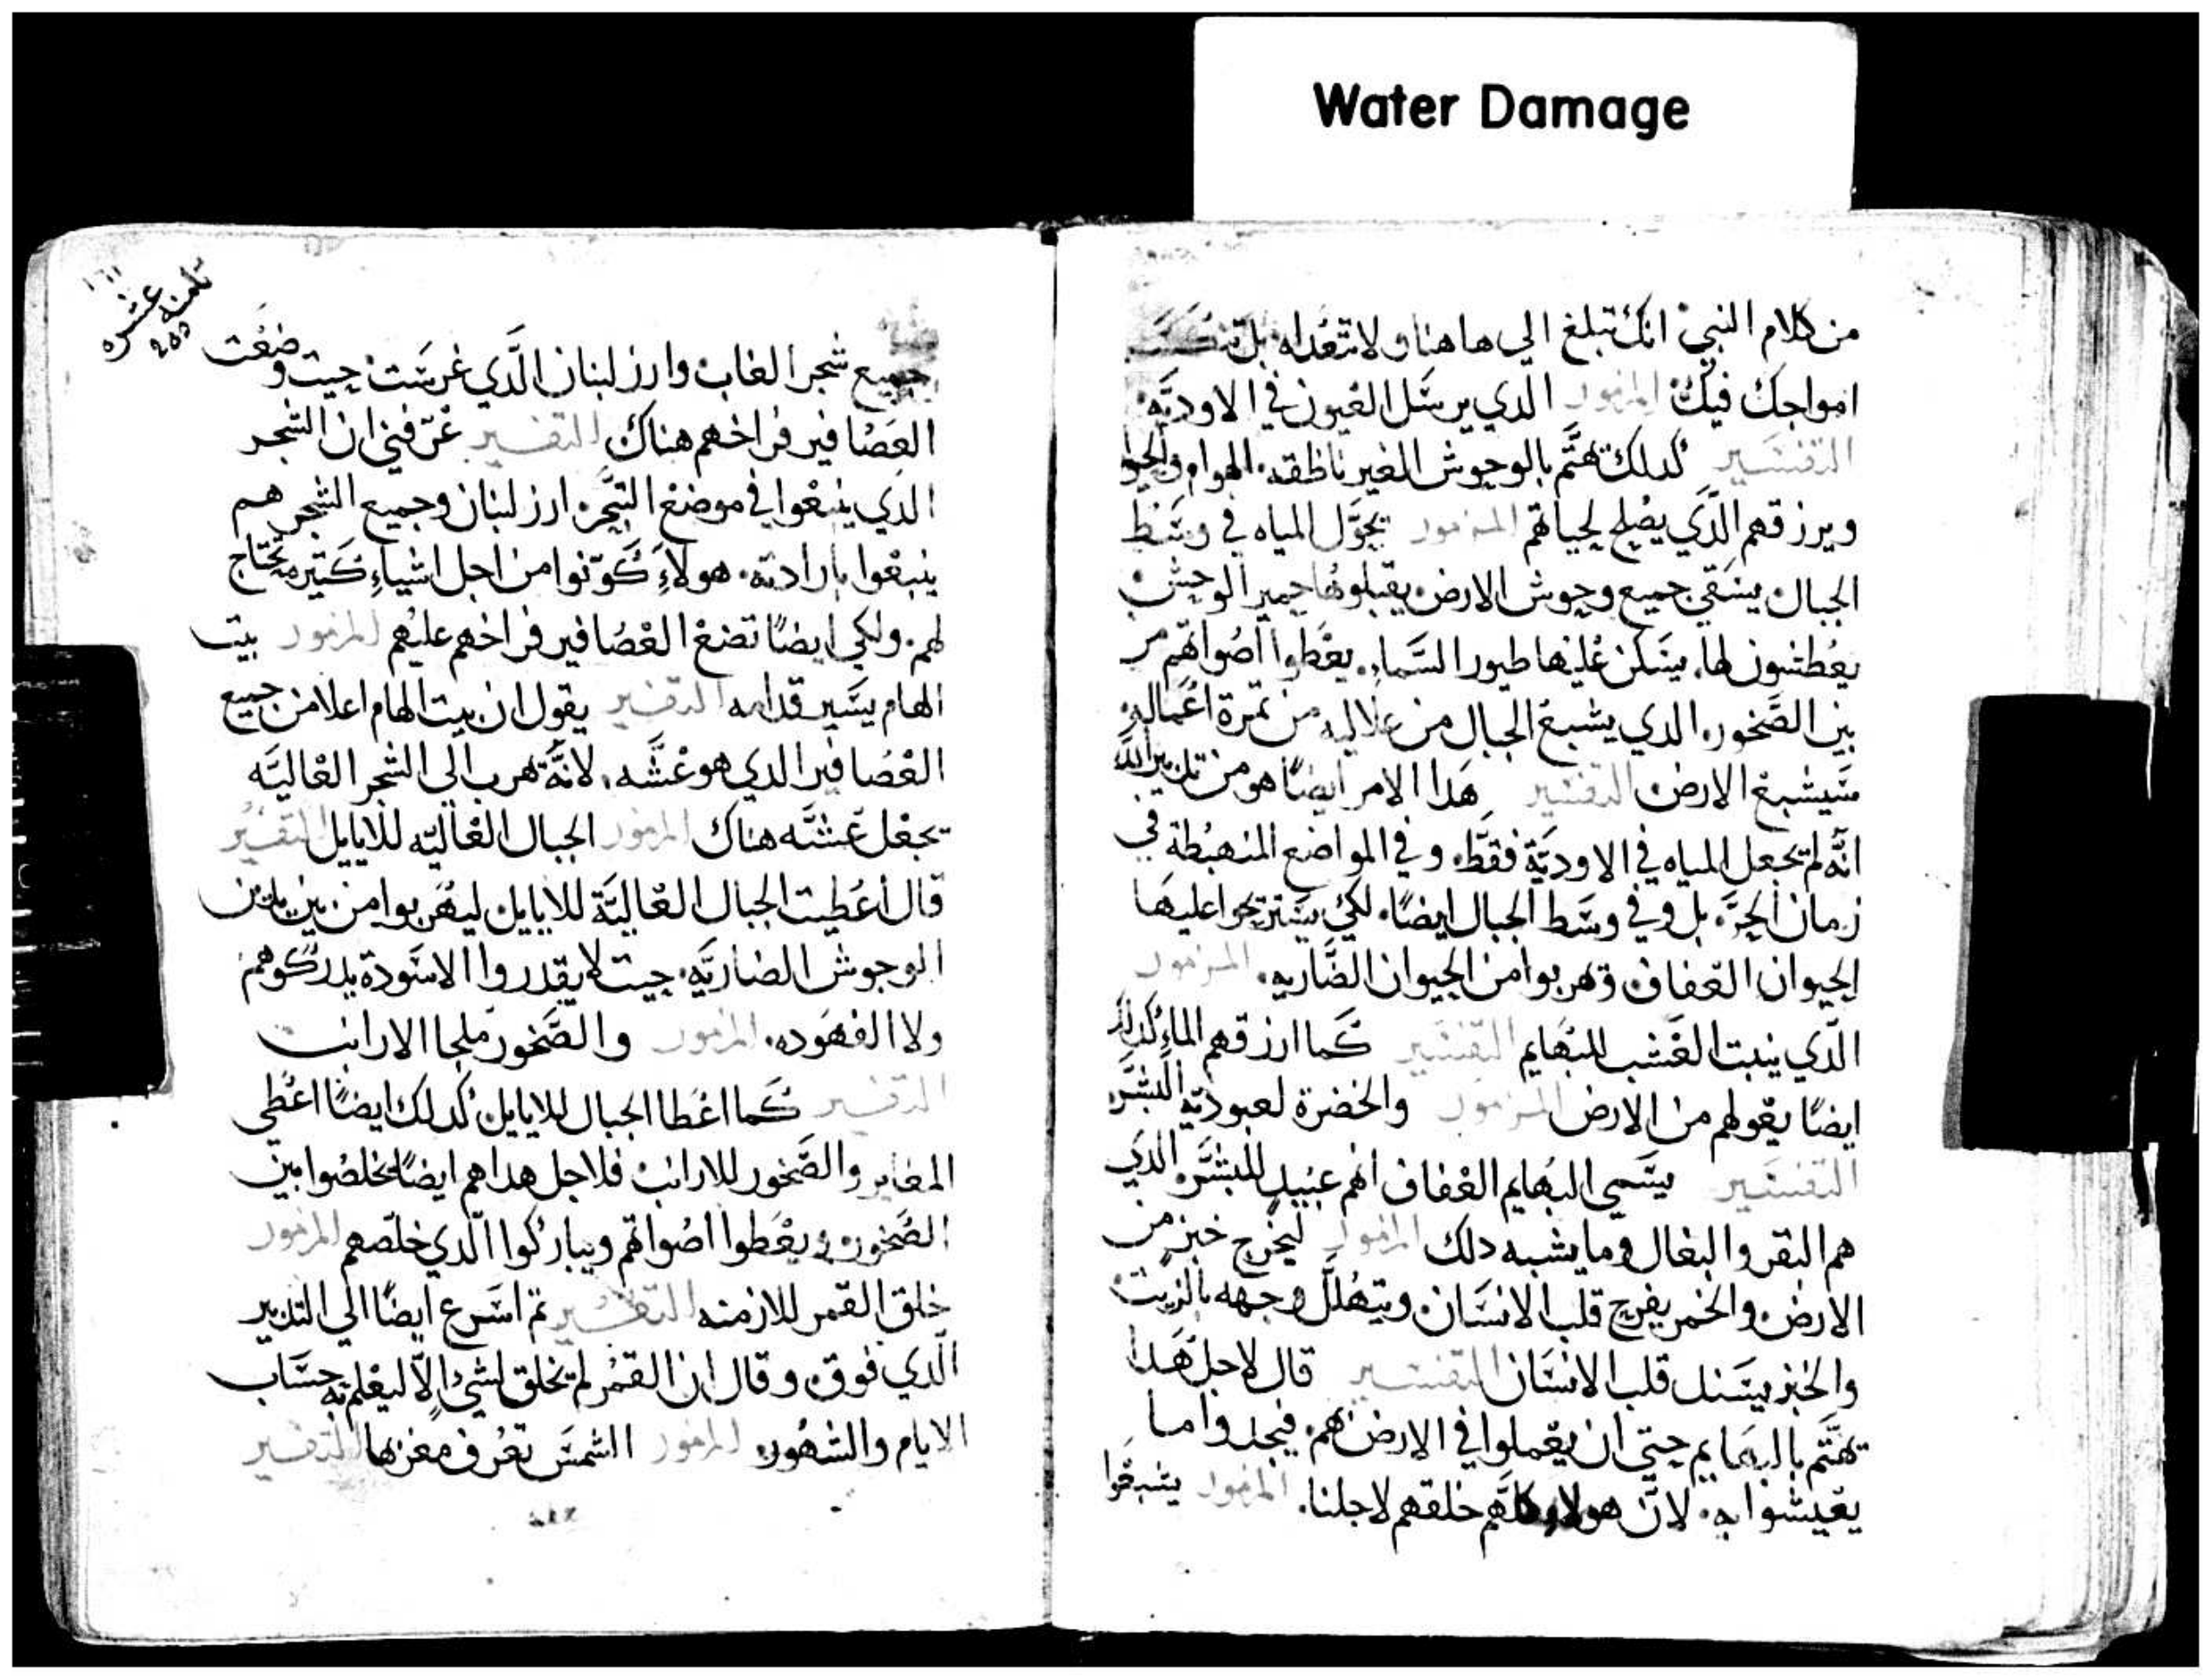 Water Damage
من كلام النبي انك تبلغ الي هاهنا ولا تتعداه بل تتكسر
امواجك فيك المزمور الدي يرسل العيون في الاوديه
التفسير كدلك تهتم بالوحوش الغير ناطقه الهوام
ويرزقهم الدي يصلح لحياتهم المزمور تجوز المياه في وسط
الجبال يسقي جميع وحوش الارض يقبلوها حمير الوحش
يعطشون لها. يسكن عليها طيور السماء. يعطوا اصواتهم من
بين الصخور. الدي يشبع الجبال من علاليه من تمرة اعماله
ستشبع الارض التفسير هدا الامر ايضا هو من تدبير الله
انه لم يجعل المياه في الاودية فقط. وفي المواضع المنهبطة في
زمان الحر بل وفي وسط الجبال ايضا. لكي يستريحوا عليها
الحيوان العفاف وهربوا من الحيوان الضاريه. المزمور
الدي ينبت العشب للبهايم التفسير كما ارزقهم الماء كدلك
ايضا يقولهم من الارض المزمور والخضرة لعبودية البشر
التفسير يسمي البهايم العفاف انهم عبيد للبشر الدي
هم البقر والبغال وما يشبه دلك المزمور ليخرج خبز من
الارض والخمر يفرح قلب الانسان ويتهلل وجهه بالزيت
والخبز يسند قلب الانسان التفسير قال لاجل هدا
تهتم بالبهايم حتي ان يعملوا في الارض هم. فيجدوا ما
يعيشوا به. لان هولاء كلهم خلقهم لاجلنا. المزمور يشبعوا
تامنه عشره
255
جميع شجر الغاب وارز لبنان الدي غرست حيت وضعت
العصافير فراخهم هناك التفسير عرفني ان الشجر
الدي ينبعوا في موضع الشجر ارز لبنان وجميع الشجر هم
ينبعوا بارادته. هولاء كونوا من اجل اشياء كتيره تحتاج
لهم. ولكي ايضا تضع العصافير فراخهم عليهم المزمور بيت
الهام يسير قدامه التفسير يقول ان بيت الهام اعلا من جميع
العصافير الدي هو عشه. لانه هرب الي الشجر العاليه
يجعل عشه هناك المزمور الجبال العاليه للايايل التفسير
قال اعطيت الجبال العالية للايايل ليهربوا من بين يدين
الوحوش الضاريه. حيت لا يقدروا الاسودة يدركوهم
ولا الفهوده. المزمور والصخور ملجا الارانب
التفسير كما اعطا الجبال للايايل كدلك ايضا اعطي
المغاير والصخور للارانب فلاجل هدا هم ايضا يخلصوا بين
الصخور ويعطوا اصواتهم ويباركوا الدي خلصهم المزمور
خلق القمر للازمنه التفسير تم اسرع ايضا الي التدبير
الدي فوق وقال ان القمر لم يخلق لشي الا ليعلم به حساب
الايام والشهور. المزمور الشمس تعرف مغربها التفسير